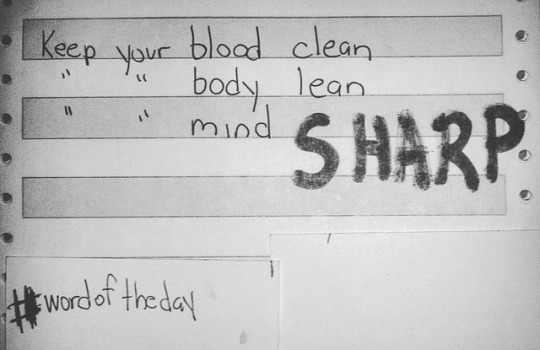 Keep your blood clean
" " body lean
" " mind SHARP
#wordoftheday